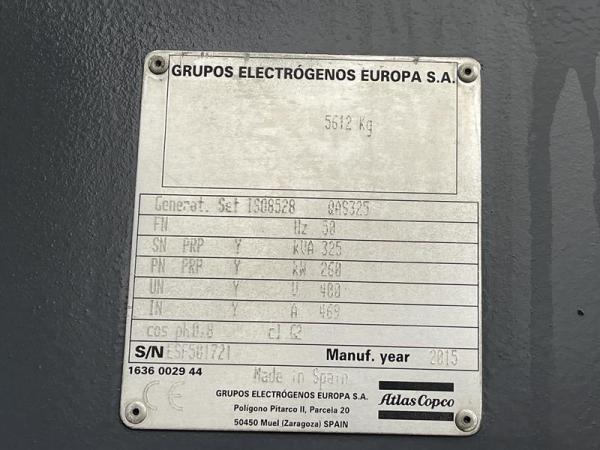 GRUPOS ELECTRÓGENOS EUROPA S.A.
5612 Kg
Generat. Set ISO8528 QAS325
FN Hz 50
SN PRP Y kVA 325
PN PRP Y kW 260
UN Y U 400
IN Y A 469
cos ph0.8 cl G2
S/N ESF501721 Manuf. year 2015
1636 0029 44
Made in Spain
CE
GRUPOS ELECTRÓGENOS EUROPA S.A.
Polígono Pitarco II, Parcela 20
50450 Muel (Zaragoza) SPAIN
Atlas Copco